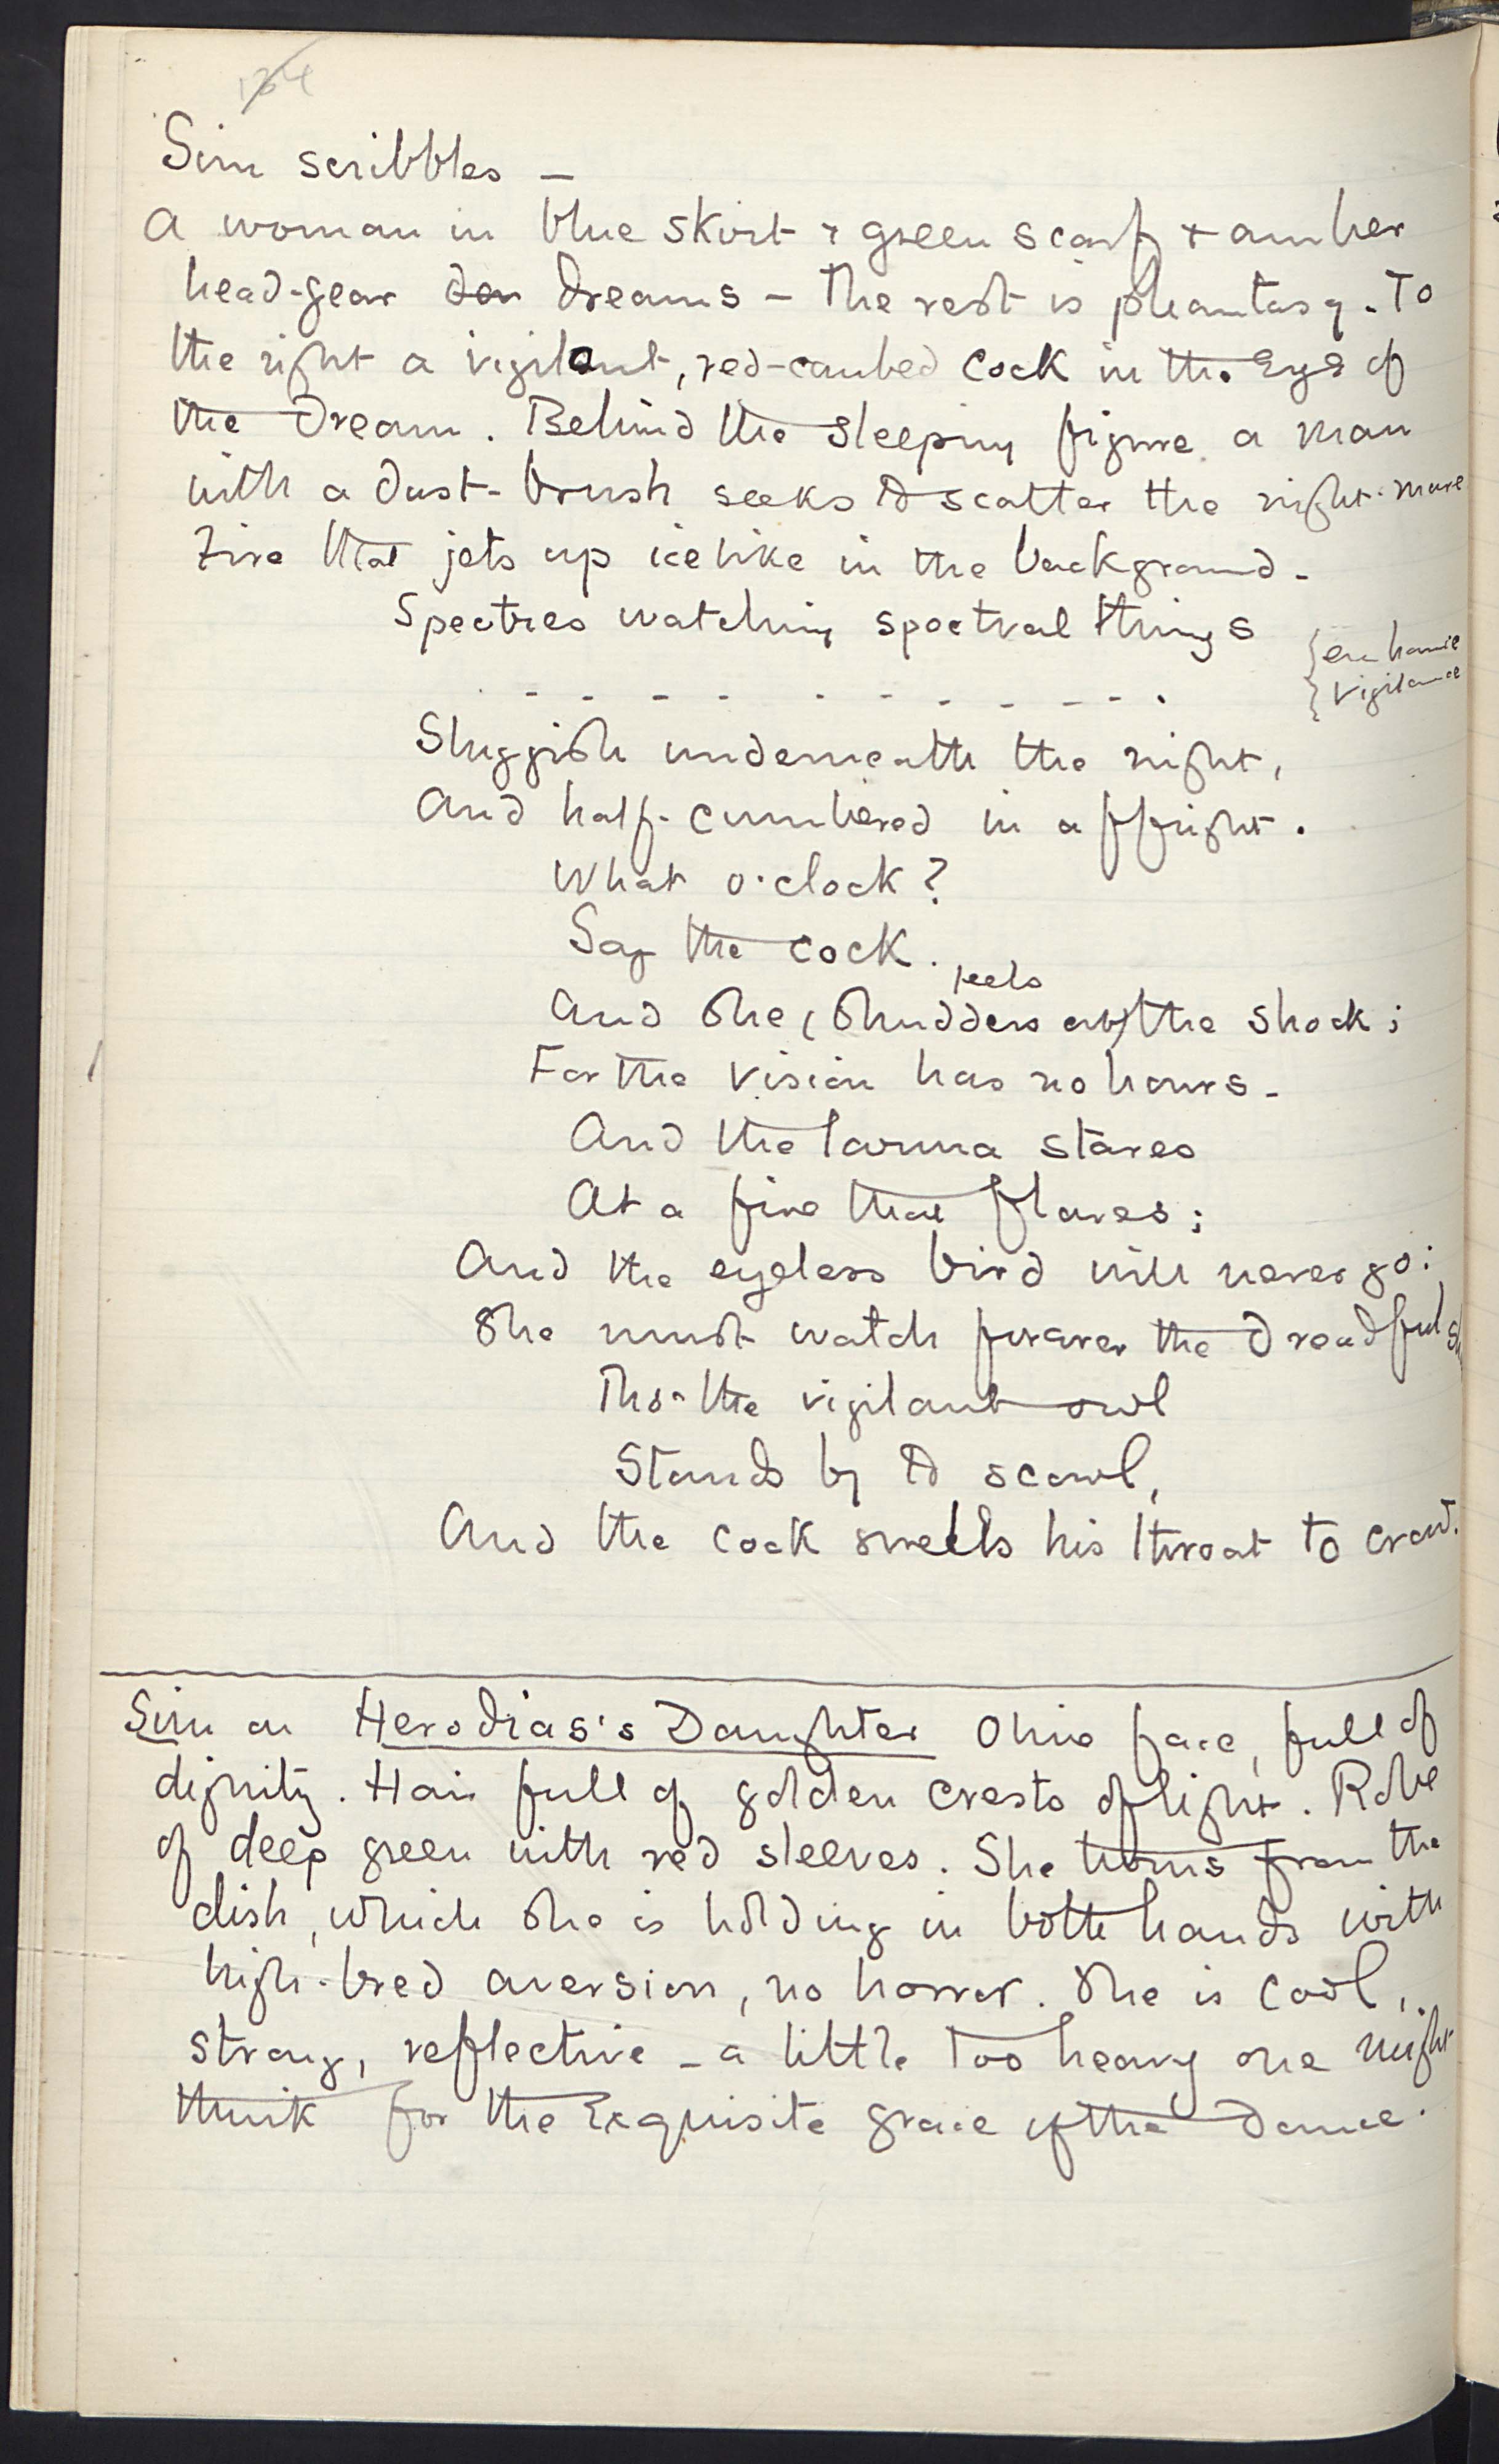 Sim scribbles —
A woman in blue skirt & green scarf & amber
head-gear dreams — the rest is phantasy. To
the right a vigilant, red-combed cock in the Eye of
the Dream. Behind the sleeping figure a man
with a dust-brush seeks to scatter the night-mare
Fire that jets up icelike in the background.
Spectres watching spectral things
{enhance
{vigilance
- - - - - - - - - - - -
Sluggish underneath the night,
And half-cumbered in affright.
What o'clock?
Say the cock.
feels
And she (shudders at) the shock;
For the vision has no hours.
And the larva stares
At a fire that flares;
And the eyeless bird will never go:
She must watch forever the dreadful
Tho' the vigilant owl
Stands by to scowl,
And the cock swells his throat to crow.
Sim on Herodias's Daughter Ohio face, full of
dignity. Hair full of golden crests of light. Robe
of deep green with red sleeves. She turns from the
dish, which she is holding in both hands with
high-bred aversion, no horror. She is cool,
strong, reflective — a little too heavy one might
think for the Exquisite grace of the Dance.